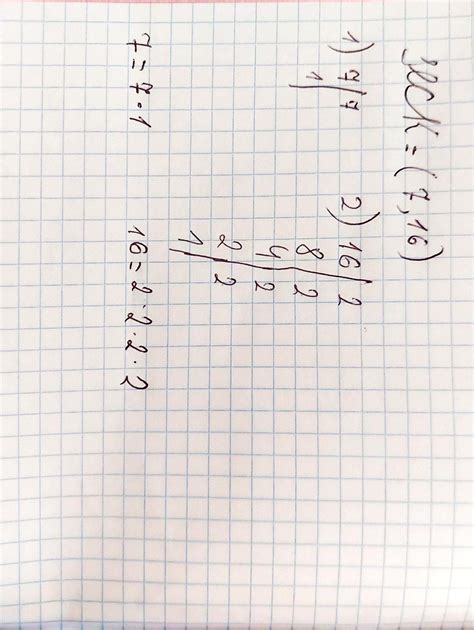 НСК = (7,16)
1) 7/7 2) 16/2
1 8 2
4 2
2 2
1
7=7·1 16=2·2·2·2